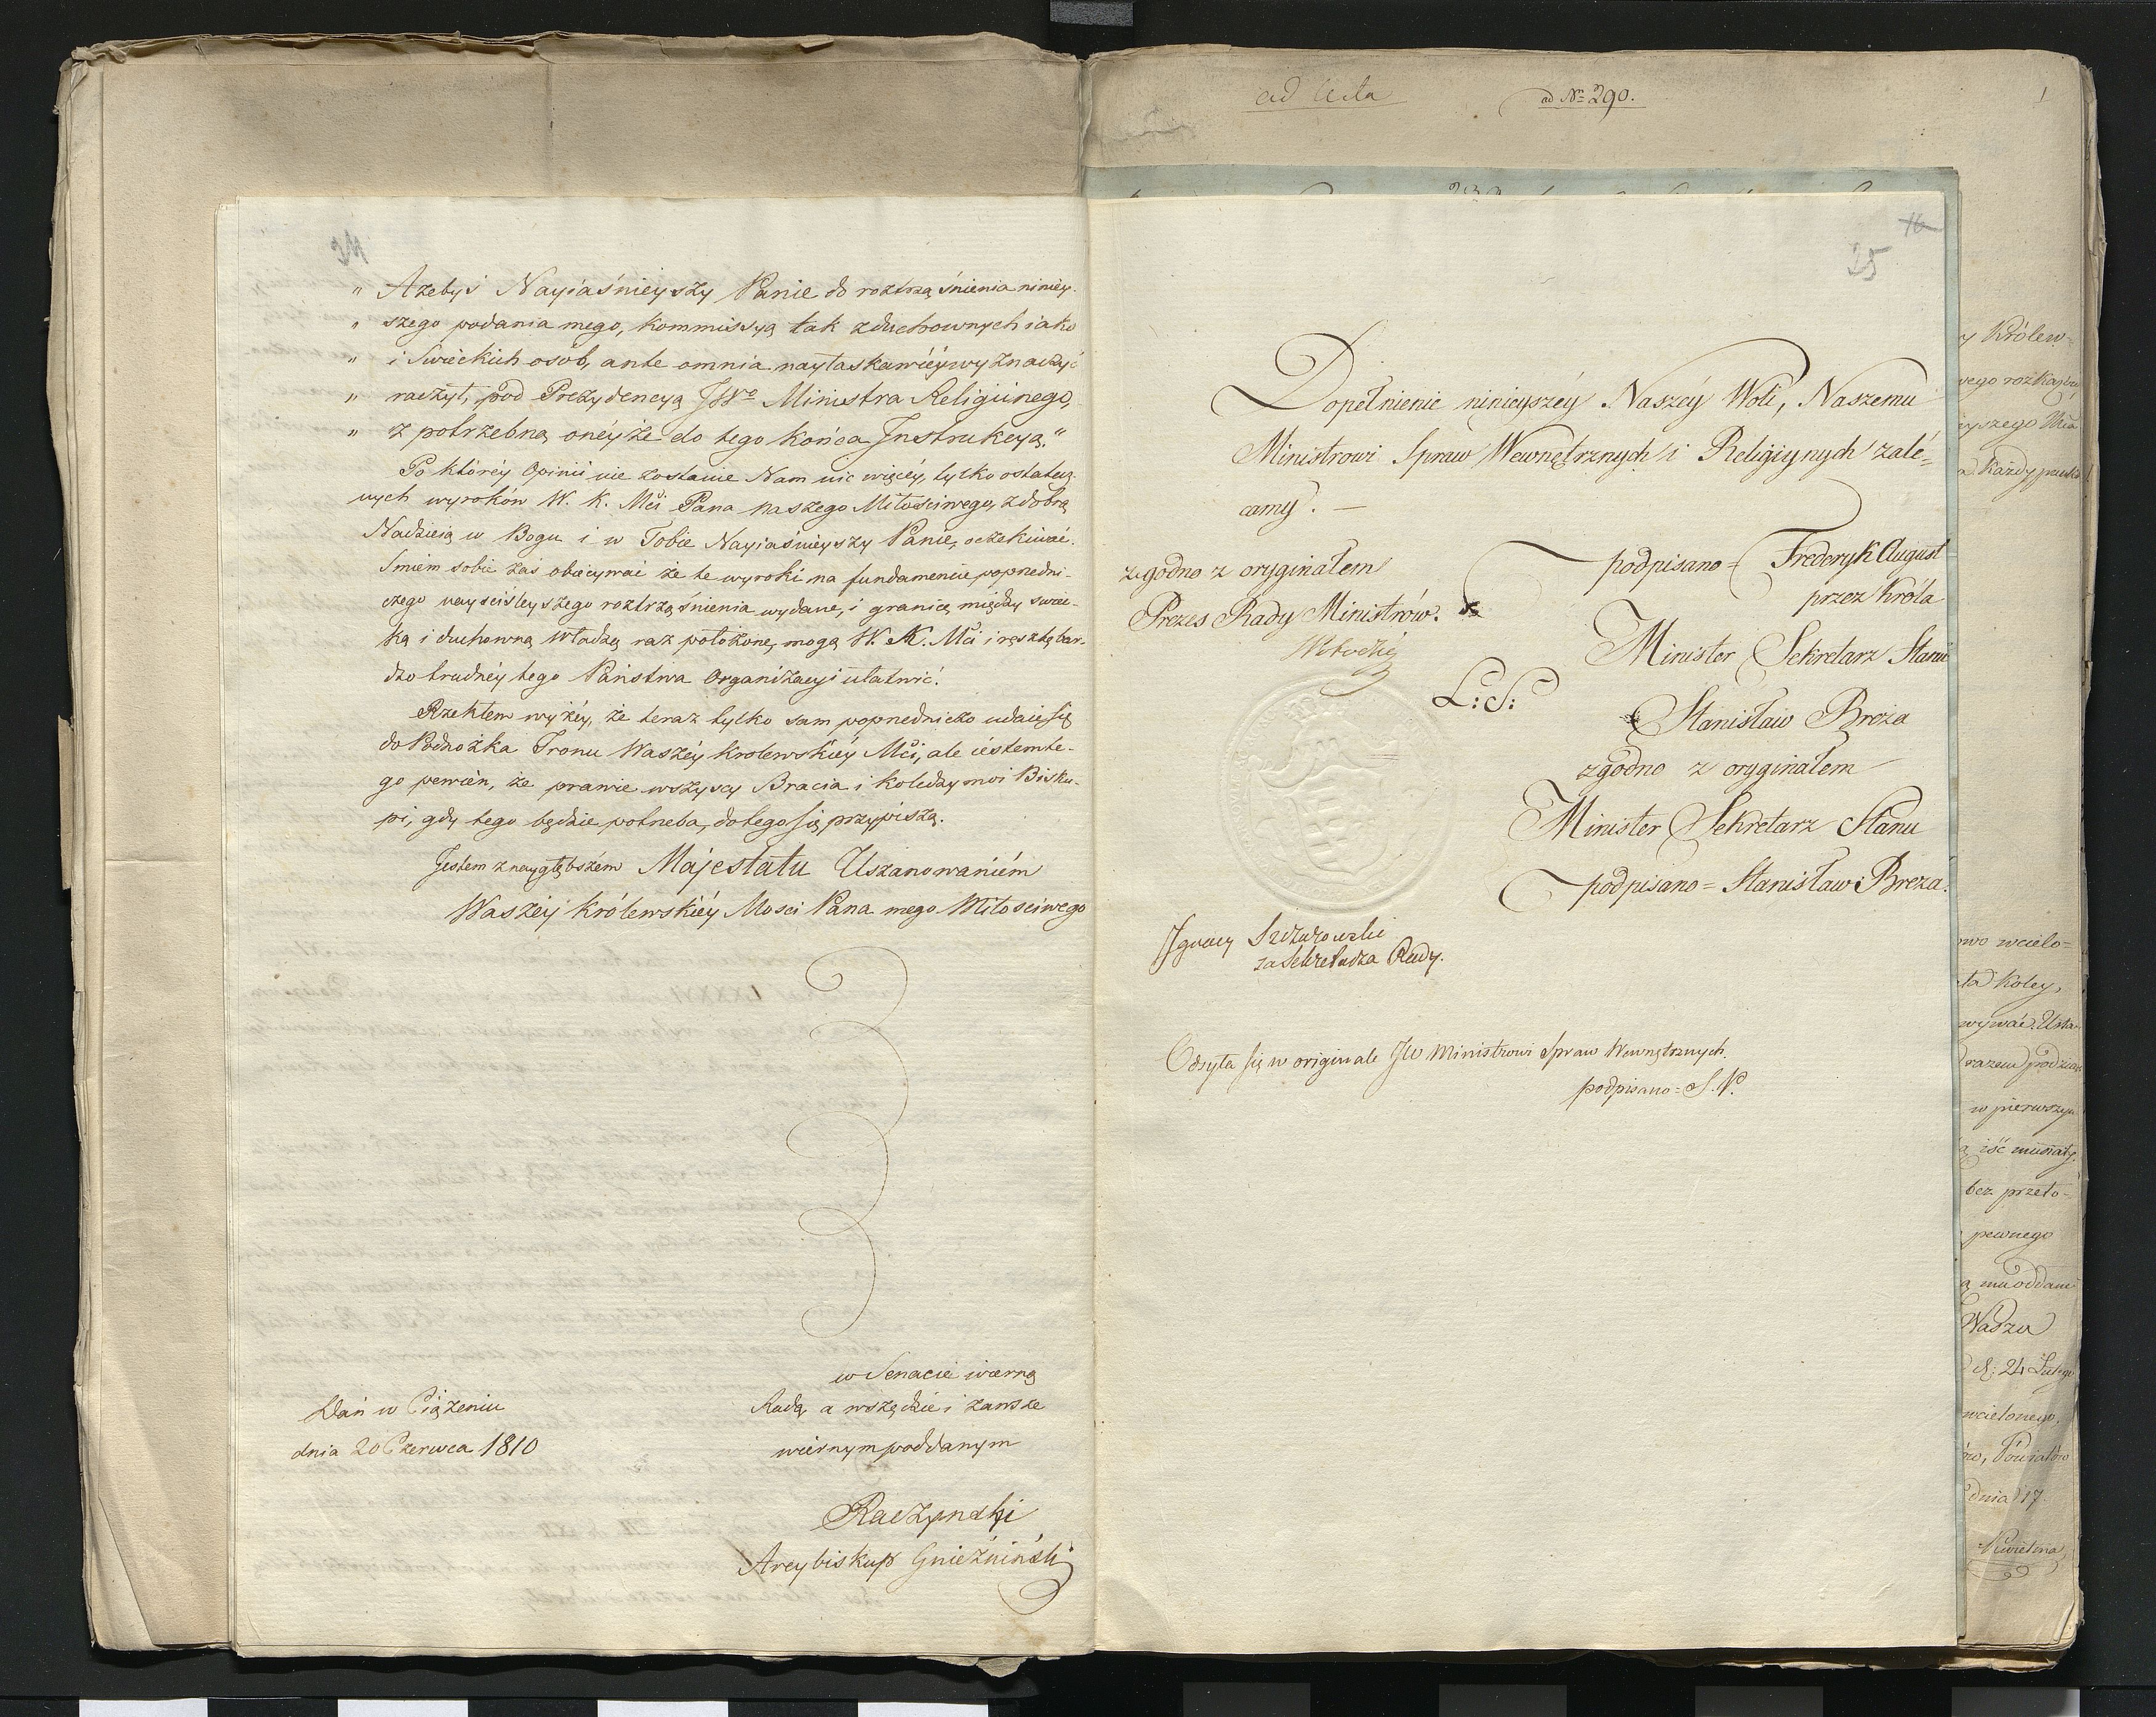 „ Ażebyś Nayiaśnieyszy Panie do roztrząśnienia niniey-
„ szego podania mego, kommissyą tak z duchownych iako
„ i Swieckich osób, ante omnia nayłaskawiéy wyznaczyć
„ raczył, pod Prezydencyą JWo Ministra Religiinego,
„ z potrzebną onéyże do tego końca Jnstrukcyą.“
Po któréy Opinii nie zostanie Nam nic więcéy, tylko ostatecz-
nych wyroków W. K. Mci Pana naszego Miłościwego, z dobrą
Nadzieią w Bogu i w Tobie Nayiaśnieyszy Panie, oczekiwać.
Smiem sobie zas obiecywać że te wyroki na fundamencie poprzedni-
czego nayściśleyszego roztrząśnienia wydane, i granicę między swiec-
ką i duchowną władzą raz położone, mogą W. K. Mci i resztę bar-
dzo trudnéy tego Państwa Organizacyi ułatwić.
Rzekłem wyżéy, że teraz tylko sam poprzedniczo udaię się
do Podnożka Tronu Waszéy Krolewskiéy Mci, ale iestem te-
go pewien, że prawie wszyscy Bracia i Koledzy moi Bisku-
pi, gdy tego będzie potrzeba, do tego się przypiszą.
Jestem z naygłębszém Majestatu Uszanowaniém
Waszéy Królewskiéy Mosci Pana mego Miłościwego
w Senacie wierną
Radą a wszędzie i zawsze
wiernym poddanym
Dań w Ciążeniu
dnia 20 Czerwca 1810
Raczynski
Arcybiskup Gnieźniński
ad Nro 290.
16
25
Dopełnienie ninieyszéy Naszéy Woli, Naszemu
Ministrowi Spraw Wewnętrznych i Religiynych zalé-
camy. —
zgodno z oryginałem
Prezes Rady Ministrów.
podpisano = Fréderyk August
przez Króla
Minister Sekretarz Stanu
L: S:
Stanisław Breza
zgodno z oryginałem
Minister Sekretarz Stanu
podpisano = Stanisław Breza.
Jgnacy
za Sekretarza Rady.
Odsyła się w originale JW Ministrowi Spraw Wewnętrznych.
podpisano = S. P.
1
y Królew-
wego rozkazu
yszego
a Każdy
owo wcielo=
ta Koley,
wywać.
razem
w pierwszym
ą iść musiały.
bez przeło-
pewnego
ą mu oddane
Wadzu
d: 24 Lutego
wcielonego,
ów, Powiatów
dnia 17.
Kwietnia